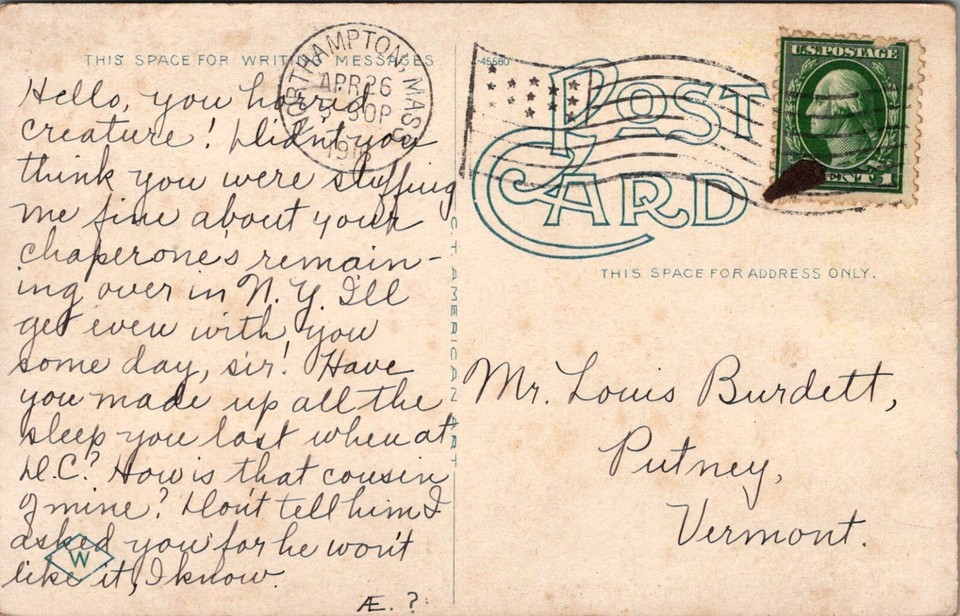 THIS SPACE FOR WRITING MESSAGES
Hello, you horrid
creature! Didn't you
think you were stuffing
me fine about your
chaperones remain-
ing over in N.Y. I'll
get even with, you
some day, sir! Have
you made up all the
sleep you lost when at
D.C.? How is that cousin
of mine? Don't tell him I
asked you for he won't
like it, I know.
Æ. ?
W
NORTHAMPTON, MASS
APR 26
30P
191
C.T. AMERICAN ART
45580
POST
CARD
U.S. POSTAGE
CENT 1
THIS SPACE FOR ADDRESS ONLY.
Mr. Louis Burdett,
Putney,
Vermont.